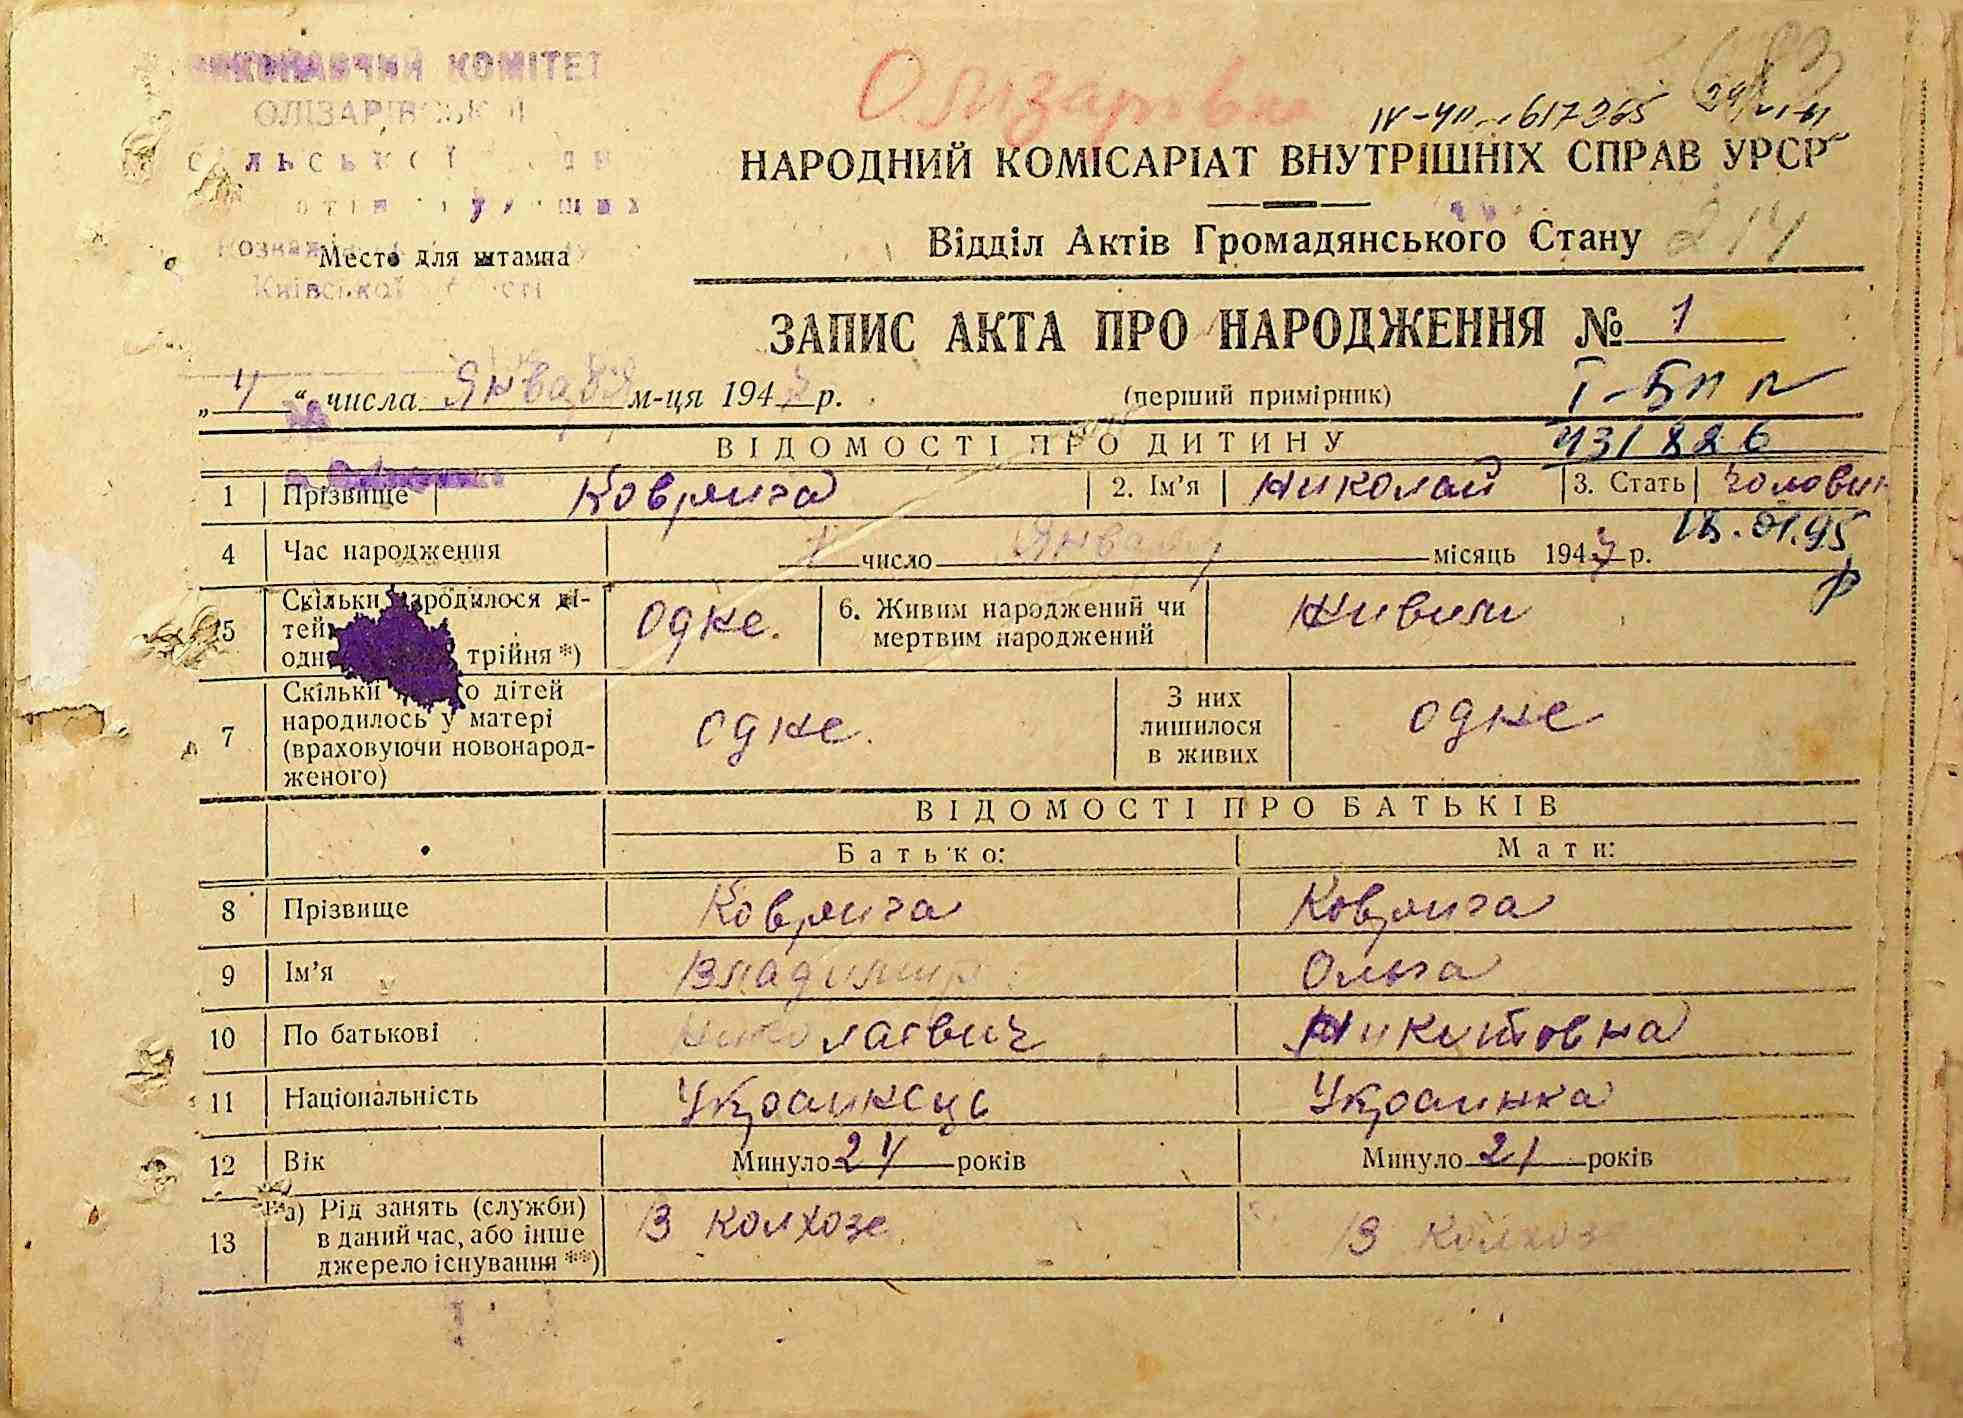 ВИКОНАВЧИЙ КОМІТЕТ
ОЛІЗАРІВСЬКОЇ
сільської
Київської області
Место для штампа
Олизарівка
IV-ЧП 617265
НАРОДНИЙ КОМІСАРІАТ ВНУТРІШНІХ СПРАВ УРСР
Відділ Актів Громадянського Стану 214
ЗАПИС АКТА ПРО НАРОДЖЕННЯ № 1
„ 4 “ числа Января м-ця 1947 р. (перший примірник)
І-БП
431826
ВІДОМОСТІ ПРО ДИТИНУ
1 Прізвище Коврига 2. Ім'я Николай 3. Стать Чоловіч
4 Час народження число Января місяць 1947 р. 18.01.95
5 Скільки народилося ді-
тей
одн трійня *) одне. 6. Живим народжений чи
мертвим народжений живим
7 Скільки дітей
народилось у матері
(враховуючи новонарод-
женого) одне. З них
лишилося
в живих одне
ВІДОМОСТІ ПРО БАТЬКІВ
Батько: Мати:
8 Прізвище Коврига Коврига
9 Ім'я Владимир Ольга
10 По батькові Николаевич Никитовна
11 Національність Украинець Украинка
12 Вік Минуло 24 років Минуло 21 років
13 а) Рід занять (служби)
в даний час, або інше
джерело існування **) В колхозе В колхозе